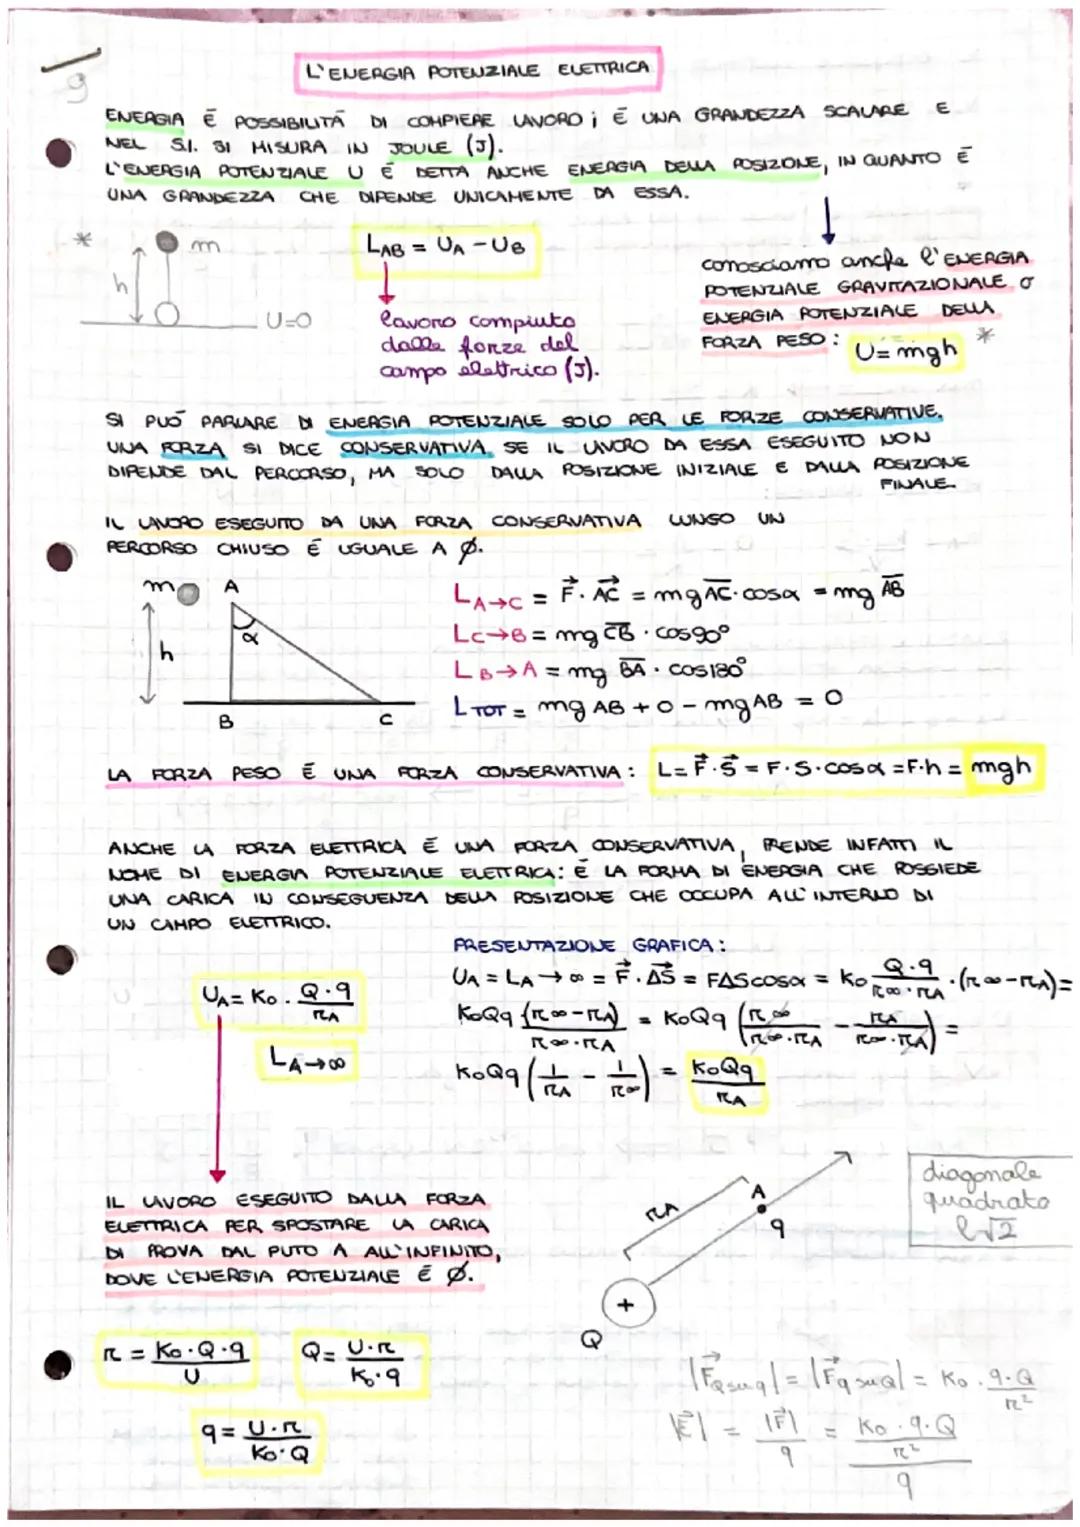 9
L'ENERGIA POTENZIALE ELETTRICA
ENERGIA È POSSIBILITÀ DI COMPIERE LAVORO; È UNA GRANDEZZA SCALARE E
NEL S.I. SI MISURA IN JOULE (J).
L'ENERGIA POTENZIALE U È DETTA ANCHE ENERGIA DELLA POSIZIONE, IN QUANTO È
UNA GRANDEZZA CHE DIPENDE UNICAMENTE DA ESSA.
* m
h
U=0
LAB = UA - UB
lavoro compiuto
dalle forze del
campo elettrico (J).
conosciamo anche l'ENERGIA
POTENZIALE GRAVITAZIONALE o
ENERGIA POTENZIALE DELLA
FORZA PESO: U = mgh *
SI PUÓ PARLARE DI ENERGIA POTENZIALE SOLO PER LE FORZE CONSERVATIVE.
UNA FORZA SI DICE CONSERVATIVA SE IL LAVORO DA ESSA ESEGUITO NON
DIPENDE DAL PERCORSO, MA SOLO DALLA POSIZIONE INIZIALE E DALLA POSIZIONE
FINALE.
IL LAVORO ESEGUITO DA UNA FORZA CONSERVATIVA LUNGO UN
PERCORSO CHIUSO È UGUALE A Ø.
m A
α
h
B C
LA→C = F⃗ · AC⃗ = mg A̅C̅ · cosα = mg A̅B̅
LC→B = mg C̅B̅ · cos90°
LB→A = mg B̅A̅ · cos180°
LTOT = mg AB + 0 - mg AB = 0
LA FORZA PESO È UNA FORZA CONSERVATIVA: L = F⃗ · S⃗ = F · S · cosα = F·h = mgh
ANCHE LA FORZA ELETTRICA È UNA FORZA CONSERVATIVA, PRENDE INFATTI IL
NOME DI ENERGIA POTENZIALE ELETTRICA: È LA FORMA DI ENERGIA CHE POSSIEDE
UNA CARICA IN CONSEGUENZA DELLA POSIZIONE CHE OCCUPA ALL'INTERNO DI
UN CAMPO ELETTRICO.
UA = K0 · Q·q / rA
LA→∞
PRESENTAZIONE GRAFICA:
UA = LA→∞ = F⃗ · ΔS⃗ = FΔScosα = K0 Q·q / r∞·rA · (r∞-rA) =
K0Qq (r∞-rA) / r∞·rA = K0Qq (r∞ / r∞·rA - rA / r∞·rA) =
K0Qq (1/rA - 1/r∞) = K0Qq / rA
IL LAVORO ESEGUITO DALLA FORZA
ELETTRICA PER SPOSTARE LA CARICA
DI PROVA DAL PUTO A ALL'INFINITO,
DOVE L'ENERGIA POTENZIALE È Ø.
rA
A
q
+
Q
diagonale
quadrato
l√2
r = K0·Q·q / U
Q = U·r / K0·q
q = U·r / K0·Q
|F⃗Q su q| = |F⃗q su Q| = K0 · q·Q / r²
|E⃗| = |F⃗| / q = K0·q·Q / r² / q